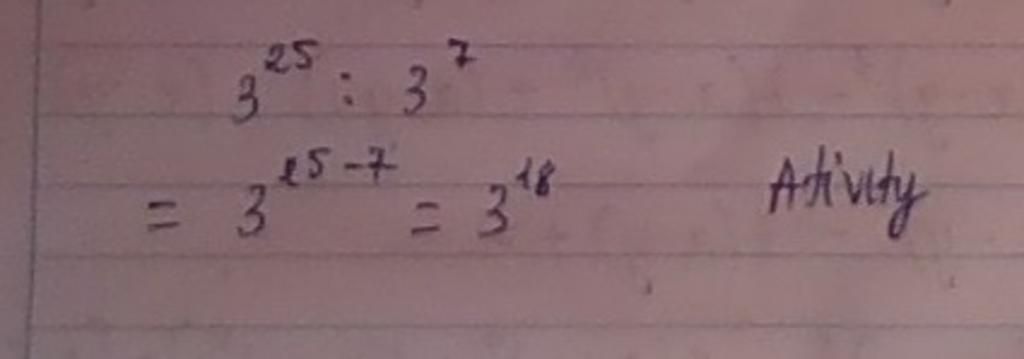 3^25 : 3^7
= 3^25-7 = 3^18 Ativity